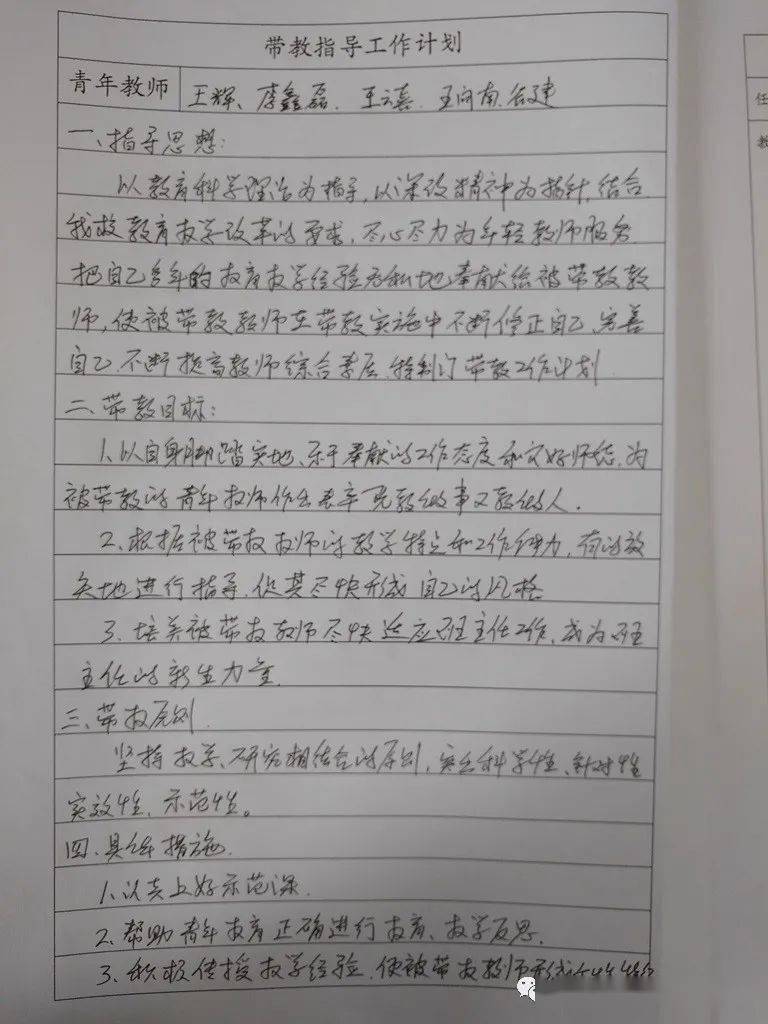 带教指导工作计划
青年教师 王辉、李鑫磊、王云嘉、王向南、谷建
一、指导思想：
以教育科学理论为指导，以深改精神为指针，结合
我校教育教学改革的要求，尽心尽力为年轻教师服务
把自己多年的教育教学经验无私地奉献给被带教教
师，使被带教教师在带教实施中不断修正自己、完善
自己、不断提高教师综合素质、特制订带教工作计划
二、带教目标：
1、以自身脚踏实地、乐于奉献的工作态度和良好师德，为
被带教的青年教师作出表率 既教做事又教做人.
2、根据被带教教师的教学特点和工作能力，有的放
矢地进行指导，促其尽快形成自己的风格
3、培养被带教教师尽快适应班主任工作，成为班
主任的新生力量.
三、带教原则.
坚持教学、研究相结合的原则，突出科学性、针对性
实效性、示范性。
四、具体措施.
1、认真上好示范课.
2、帮助青年教育正确进行教育、教学反思.
3、积极传授教学经验、使被带教教师形成
任
教